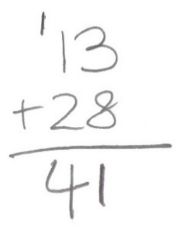 1
13
+28
41